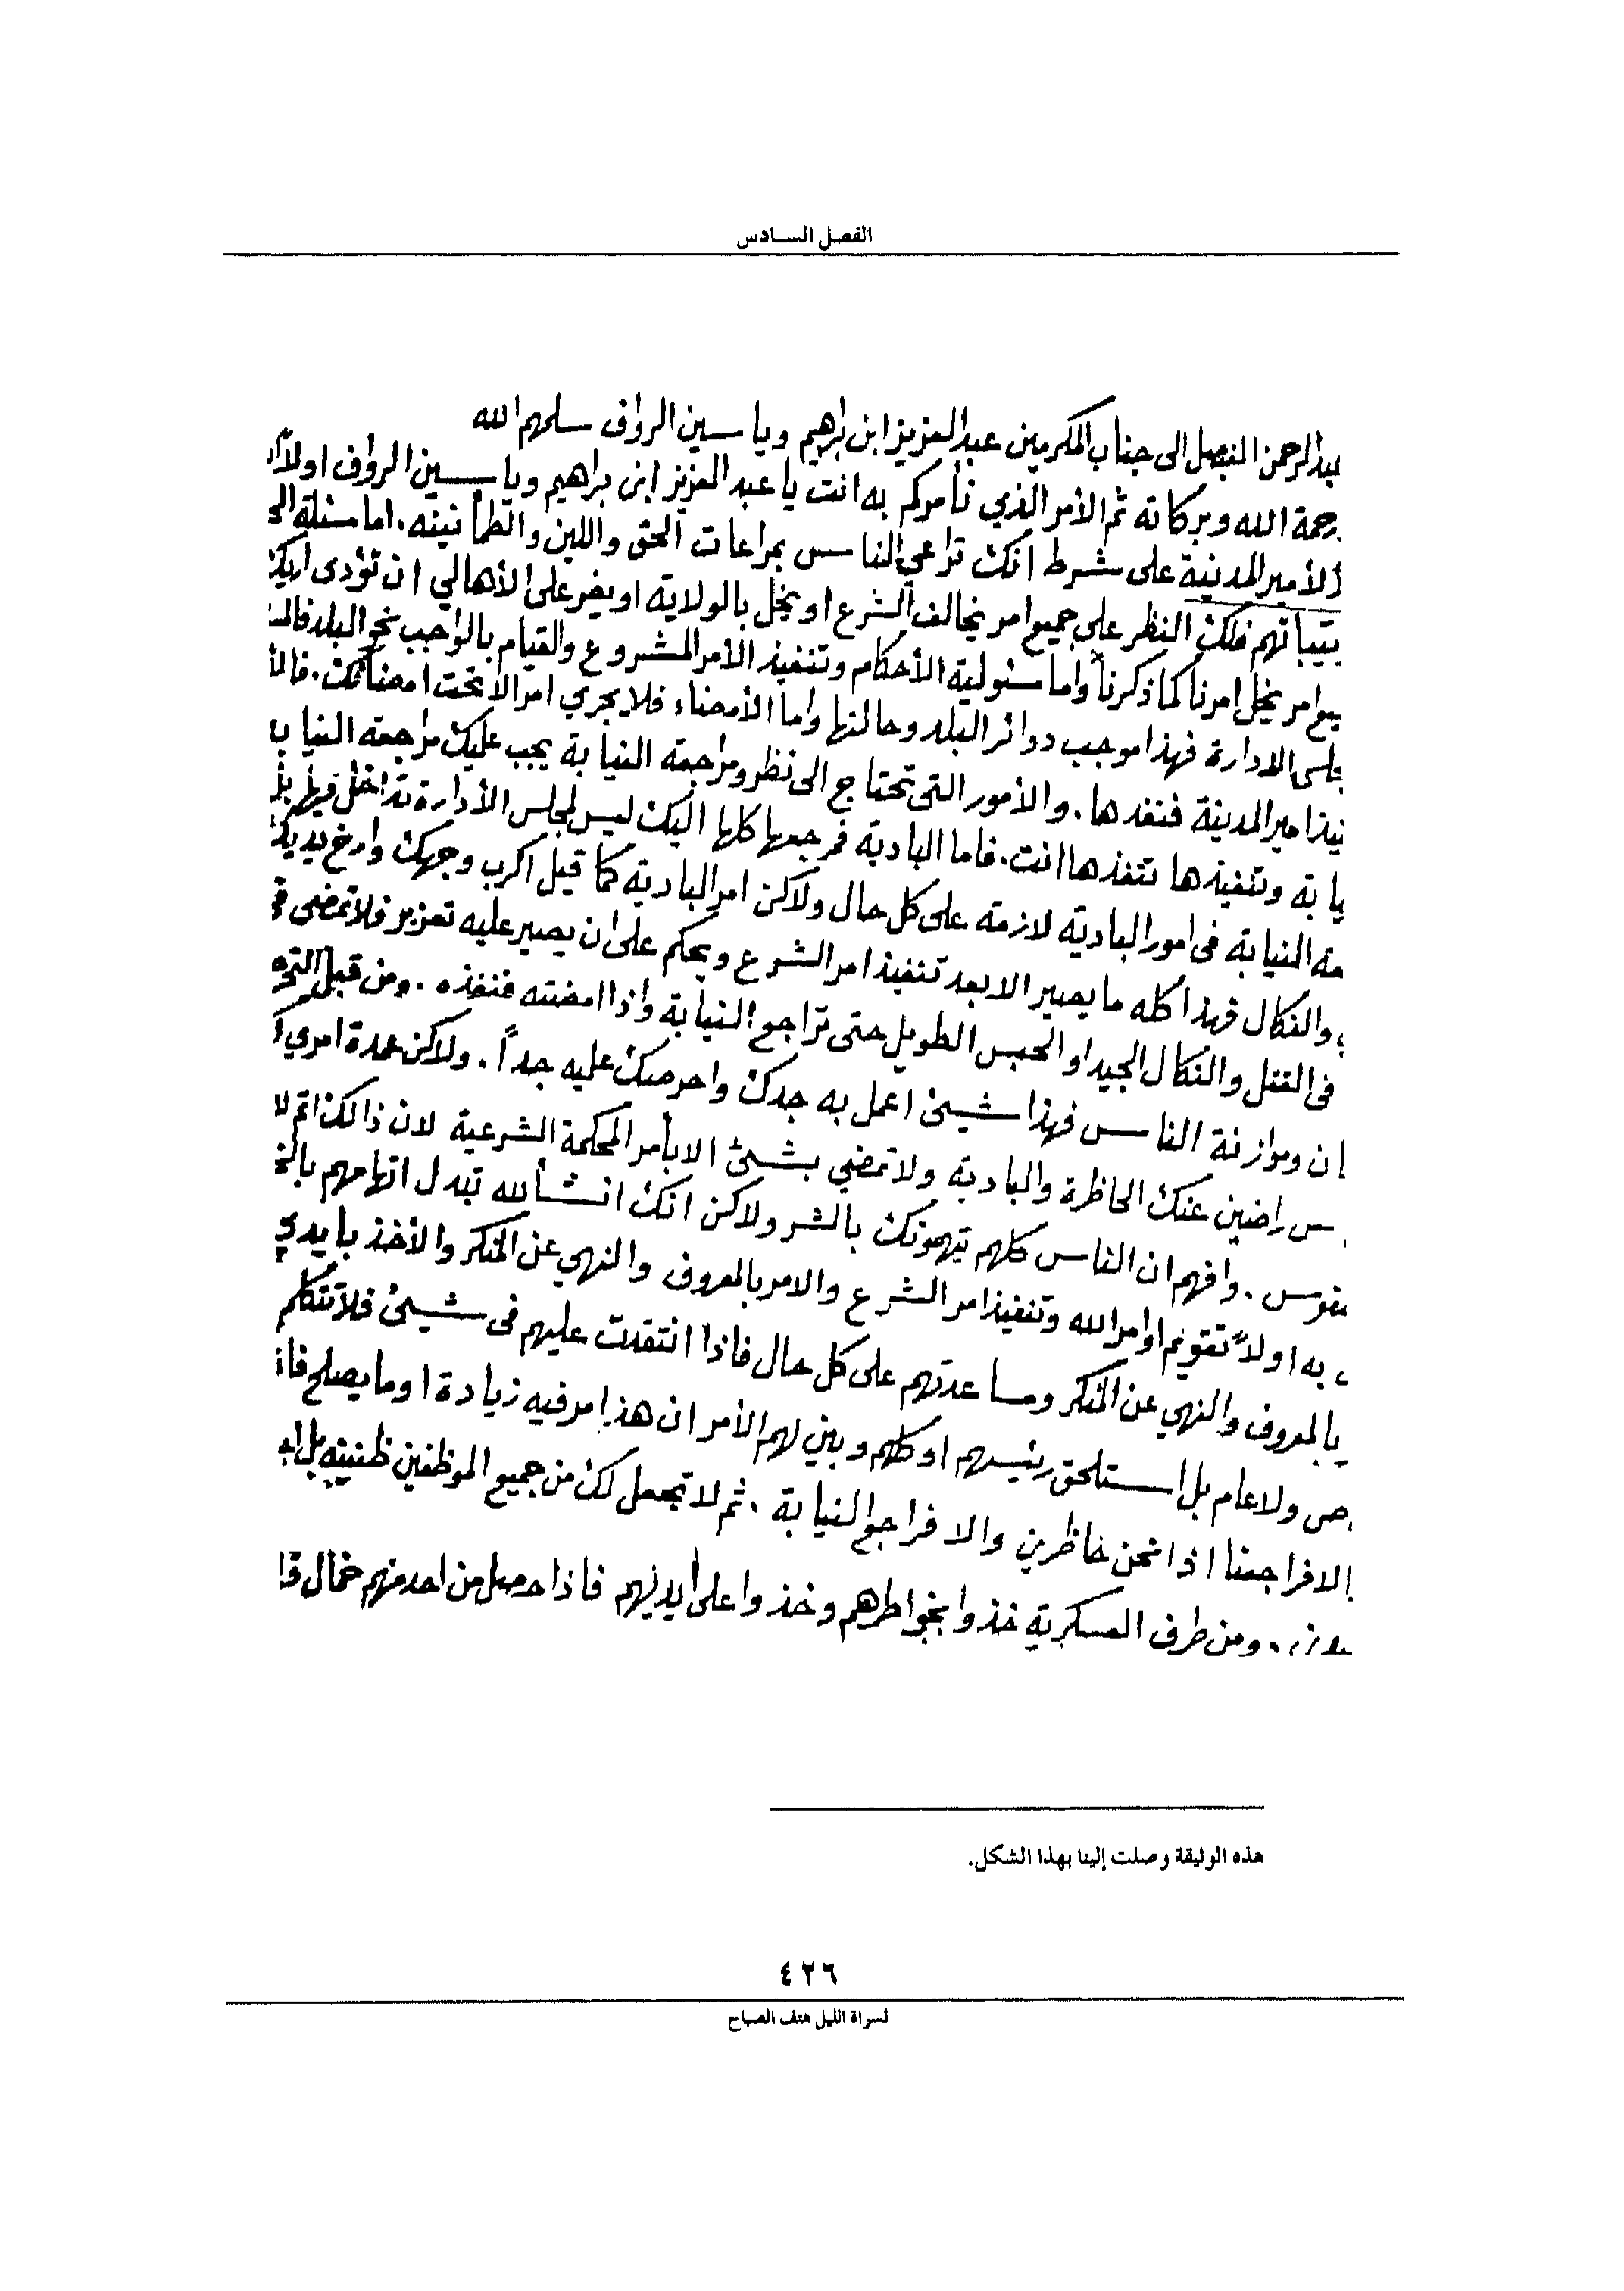 الفصل السادس
عبدالرحمن الفيصل الى جناب المكرمين عبدالعزيز ابن براهيم وياسين الرواف سلمهم الله
رحمة الله وبركاته ثم الأمر الذي نأمركم به انت يا عبدالعزيز ابن براهيم وياسين الرواف اولاً
الأمير المدنية على شرط انك تراعي الناس بمراعات الحق واللين والطمأنينه. اما مسئلة
فلك النظر على جميع امر يخالف الشرع او يخل بالولاية او يغير على الأهالي ان تؤدى
امر يخل امرنا كما ذكرنا واما مسئولية الأحكام وتنفيذ الأمر المشروع والقيام بالواجب نحو البلد
الادارة فهذا موجب دوائر البلد وحالتها واما الأمضاء فلا يجري امر الا تحت امضائك.
امير المدينة فنفدها. والأمور التى تحتاج الى نظر ومراجعة النيابة يجب عليك مراجعة
يابة وتنفيذها تنفذها انت. فاما البادية فمرجعها كلها اليك ليس لمجلس الأدارة تداخل فيها
النيابة فى امور البادية لازمة على كل حال ولاكن امر البادية كما قيل اكرب وجهك وارخ يديك
والنكال فهذا كله ما يصير الا بعد تنفيذ امر الشرع ويحكم على ان يصير عليه تعزير فلا تمضى
فى القتل والنكال الجيد او الحبس الطويل حتى تراجع النيابة واذا امضته فنفذه. ومن قبل
ان وموازنة الناس فهذا شيئ اعمل به جدك واحرصك عليه جداً. ولاكن عمدة امري
س راضين عنك الحاظرة والبادية ولا تمضي بشيئ الا بأمر المحكمة الشرعية لان ذالك
وافهم ان الناس كلهم يتهمونك بالشر ولاكن انك انشألله تبدل اتهامهم
به اولاً تقويم اوامر الله وتنفيذ امر الشرع والامر بالمعروف والنهي عن المنكر والأخذ بايدي
بالمعروف والنهي عن المنكر ومساعدتهم على كل حال فاذا انتقدت عليهم فى شيئ فلا تتكلم
ولا عام بل استلحق رئيسهم او كلهم وبين لهم الأمر ان هذا امر فيه زيادة او ما يصلح
الا فراجعنا اذا نحن حاظرين والا فراجع النيابة. ثم لا تجعل لك من جميع الموظفين
ومن طرف العسكرية خذوا بخواطرهم وخذوا على أيديهم فاذا حصل من احد منهم
هذه الوثيقة وصلت إلينا بهذا الشكل.
٤٢٦
لسراة الليل هتف الصباح